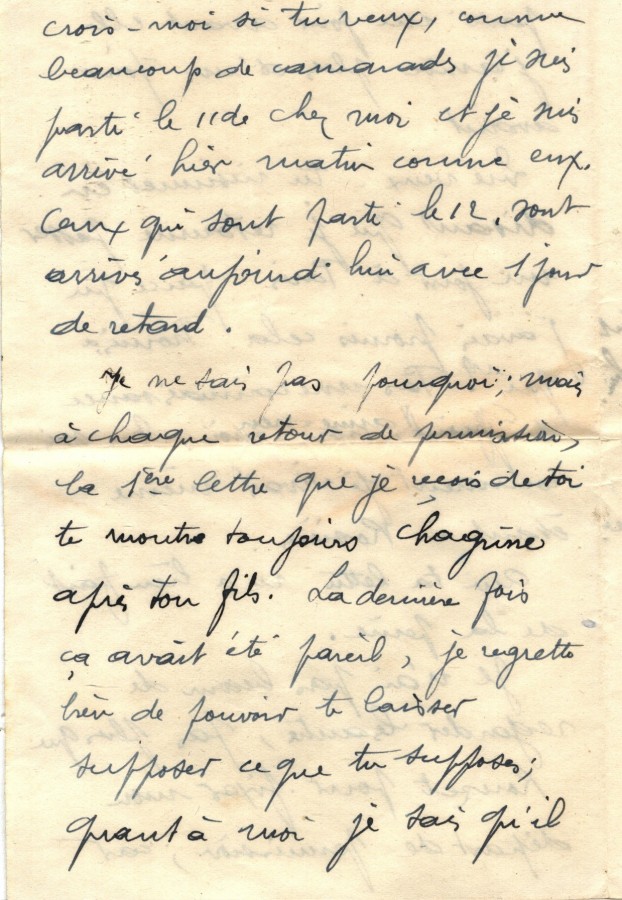 crois-moi si tu veux, comme
beaucoup de camarads je suis
parti le 11 de chez moi et je suis
arrivé hier matin comme eux.
Ceux qui sont parti le 12, sont
arrivés aujourd'hui avec 1 jour
de retard.
Je ne sais pas pourquoi; mais
à chaque retour de permission,
la 1ère lettre que je reçois de toi
te montre toujours chagrine
après ton fils. La dernière fois
ça avait été pareil, je regrette
bien de pouvoir te laisser
supposer ce que tu supposes;
quant à moi je sais qu'il